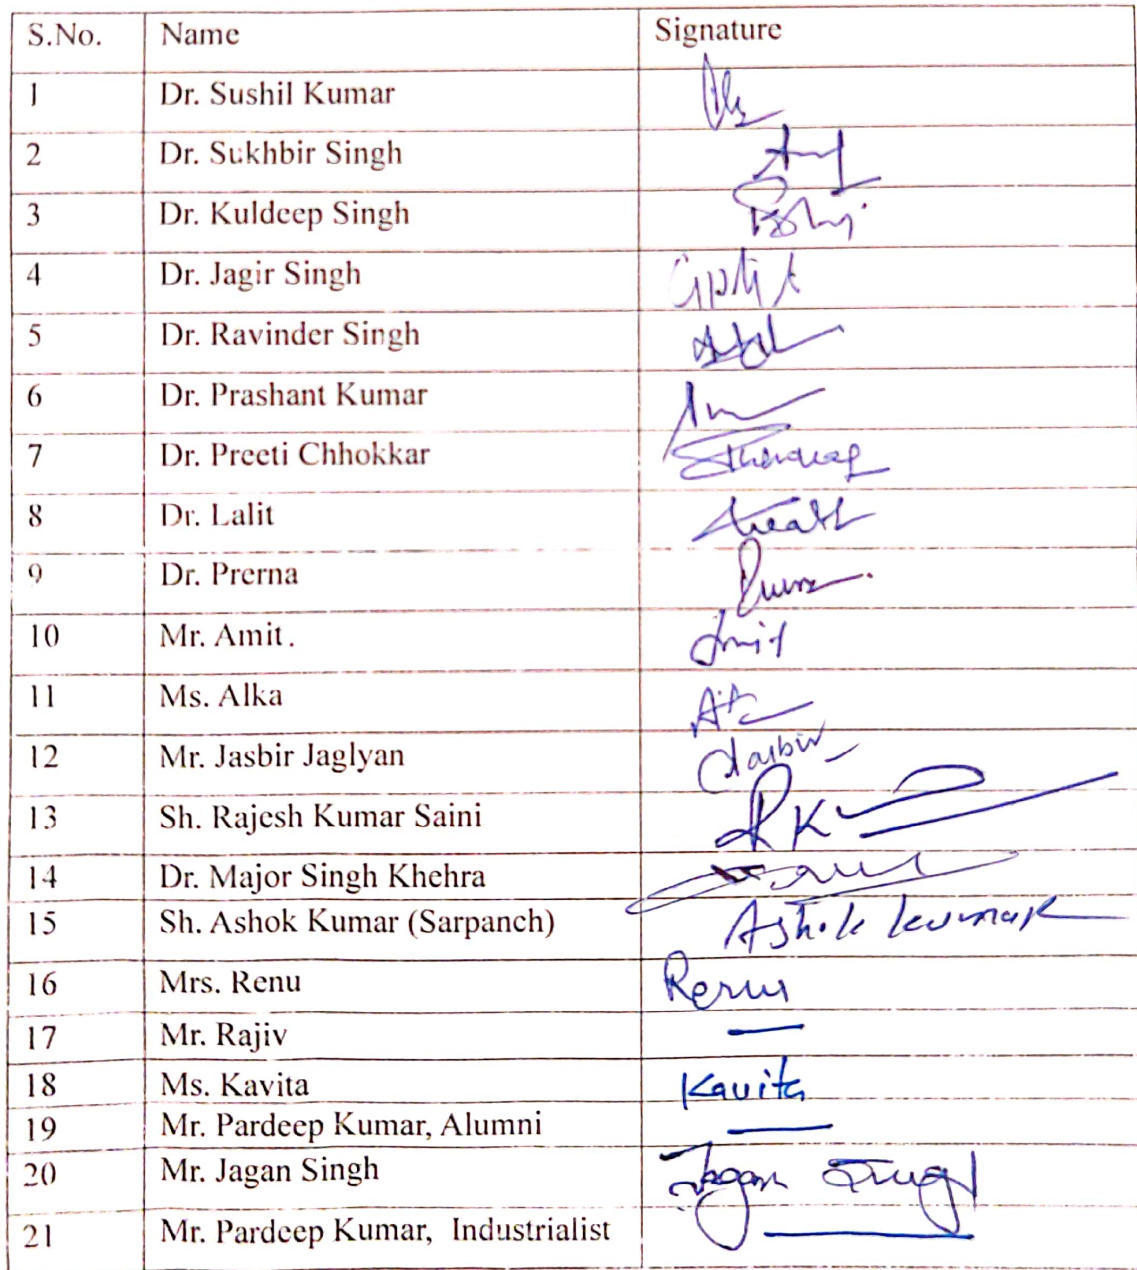 S.No. Name Signature
1 Dr. Sushil Kumar
2 Dr. Sukhbir Singh
3 Dr. Kuldeep Singh
4 Dr. Jagir Singh
5 Dr. Ravinder Singh
6 Dr. Prashant Kumar
7 Dr. Preeti Chhokkar
8 Dr. Lalit
9 Dr. Prerna
10 Mr. Amit. Amit
11 Ms. Alka
12 Mr. Jasbir Jaglyan Jasbir
13 Sh. Rajesh Kumar Saini RK
14 Dr. Major Singh Khehra
15 Sh. Ashok Kumar (Sarpanch) Ashok kumar
16 Mrs. Renu Renu
17 Mr. Rajiv —
18 Ms. Kavita Kavita
19 Mr. Pardeep Kumar, Alumni —
20 Mr. Jagan Singh Jagan Singh
21 Mr. Pardeep Kumar, Industrialist —